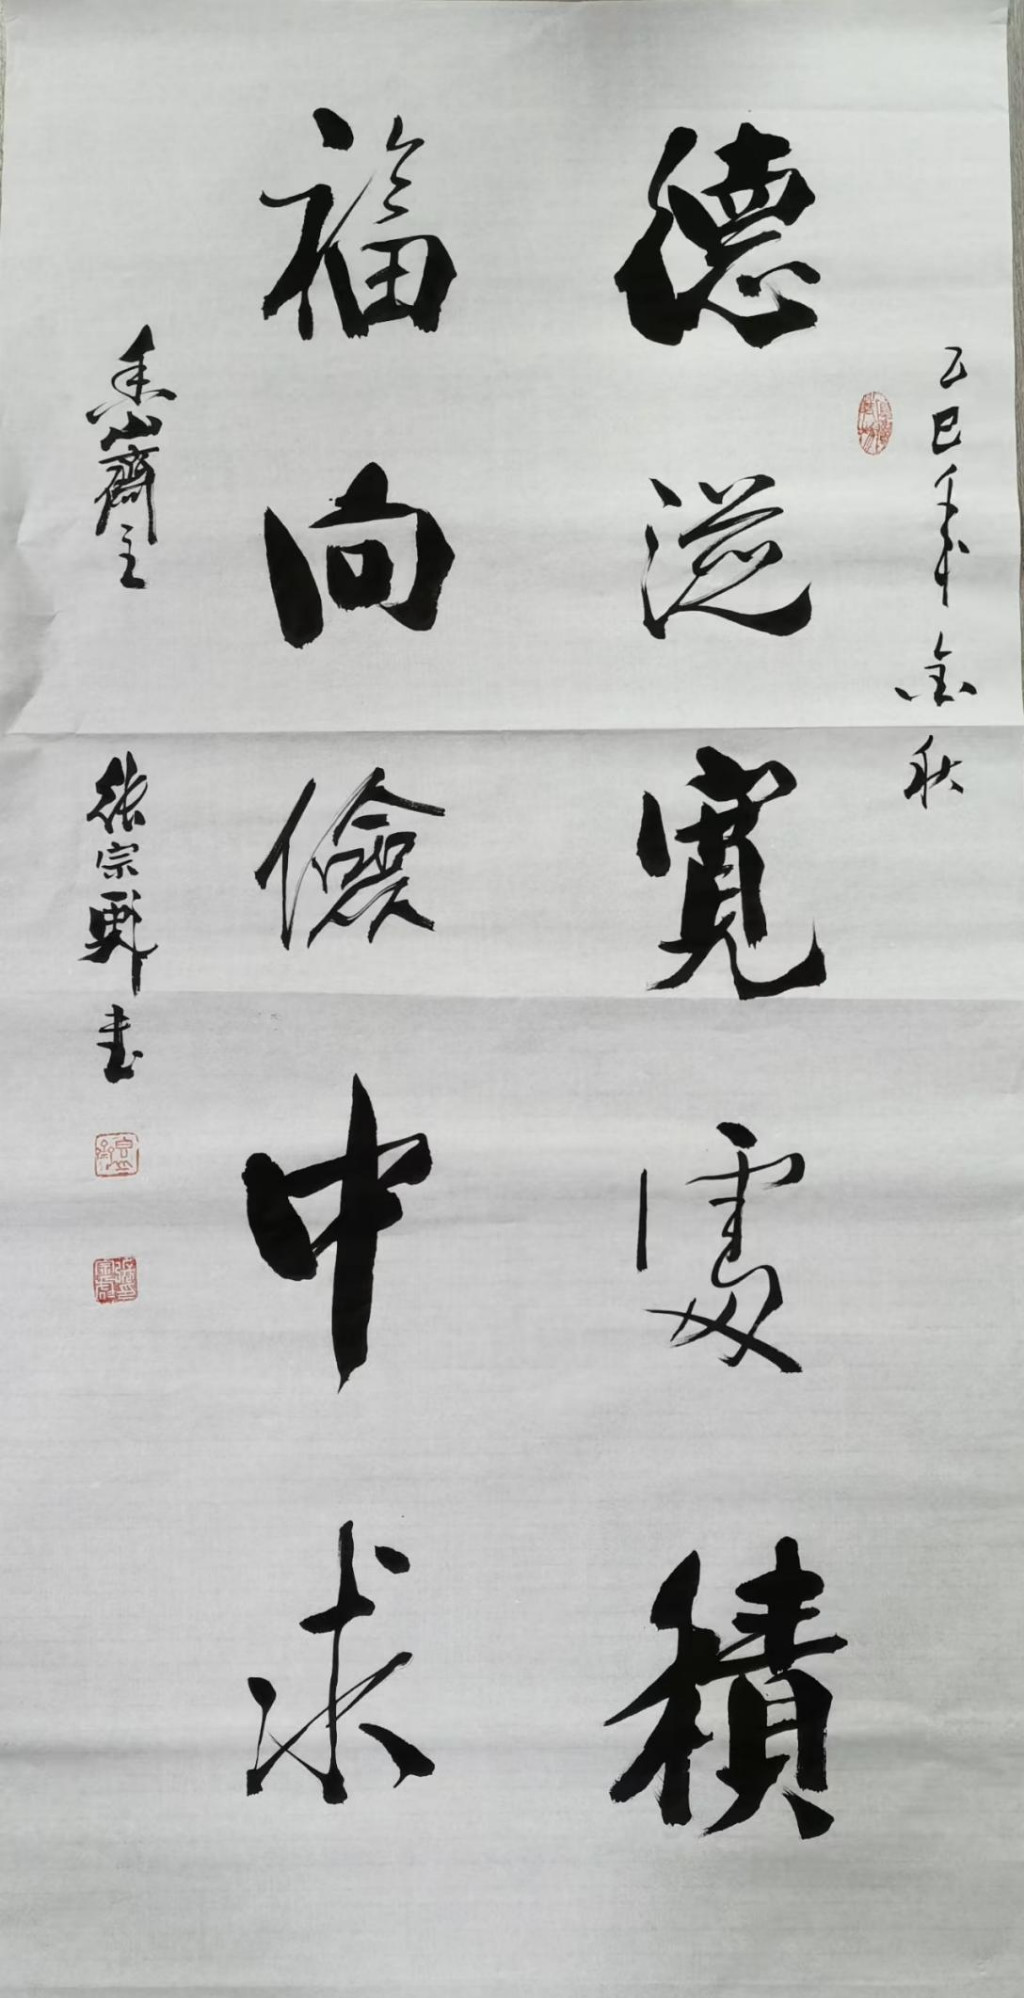 乙巳年金秋
德從寬處積
福向儉中求
香山齋主
張宗彝書